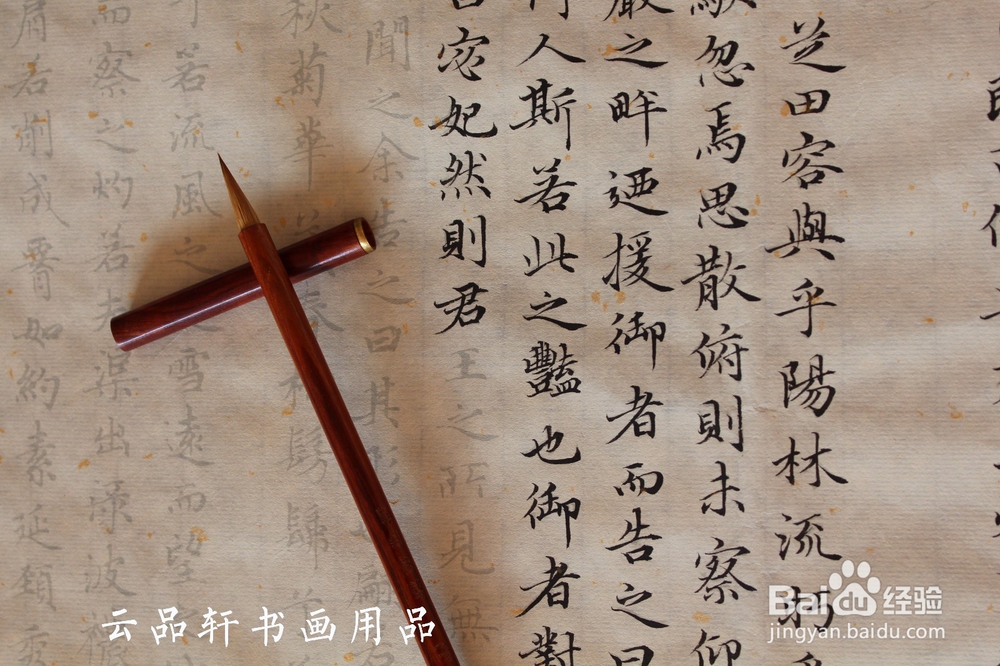 芝田容與乎陽林流眄
駭忽焉思散俯則未察仰
巖之畔迺援御者而告之曰
何人斯若此之豔也御者對
宓妃然則君王之所見無
聞之余告之曰其形也翩
秋菊華茂春松髣髴
若流風之迴雪遠而望
而察之灼若芙蕖出淥波
肩若削成腰如約素延頸秀
云品轩书画用品
Baidu经验
jingyan.baidu.com